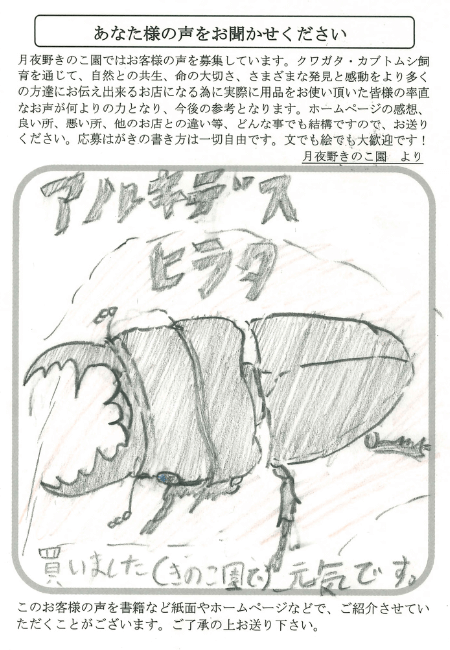 あなた様の声をお聞かせください
月夜野きのこ園ではお客様の声を募集しています。クワガタ・カブトムシ飼
育を通じて、自然との共生、命の大切さ、さまざまな発見と感動をより多く
の方達にお伝え出来るお店になる為に実際に用品をお使い頂いた皆様の率直
なお声が何よりの力となり、今後の参考となります。ホームページの感想、
良い所、悪い所、他のお店との違い等、どんな事でも結構ですので、お送り
ください。応募はがきの書き方は一切自由です。文でも絵でも大歓迎です！
月夜野きのこ園　より
アルキデス
ヒラタ
買いました（きのこ園で）元気です。
このお客様の声を書籍など紙面やホームページなどで、ご紹介させてい
ただくことがございます。ご了承の上お送り下さい。